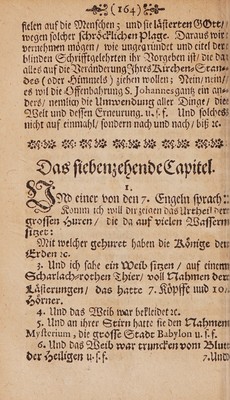 (164)
fielen auf die Menschen; und sie lästerten GOtt/
wegen solcher schröcklichen Plage. Daraus wir
vernehmen mögen/ wie ungegründet und eitel der
blinden Schrifftgelehrten ihr Vorgeben ist/ die da
alles auf die Veränderung Jhres Kirchen-Stan-
des (oder Himmels) ziehen wollen; Nein/nein/
es wil die Offenbahrung S. Johannes gantz ein an-
ders/ nemlich die Umwendung aller Dinge/ die
Welt und dessen Erneurung. u. s. f. Und solches
nicht auf einmahl/ sondern nach und nach/ biß ꝛc.
Das siebenzehende Capitel.
1.
UNd einer von den 7. Engeln sprach:
Komm ich will dir zeigen das Urtheil der
grossen Huren/ die da auf vielen Wassern
sitzet:
Mit welcher gehuret haben die Könige der
Erden ꝛc.
3. Und ich sahe ein Weib sitzen/ auf einem
Scharlachrothen Thier/ voll Nahmen der
Lästerungen/ das hatte 7. Köpffe und 10.
Hörner.
4. Und das Weib war bekleidet ꝛc.
5. Und an ihrer Stirn hatte sie den Nahmen
Mysterium, die grosse Stadt Babylon u. s. f.
6. Und das Weib war truncken vom Blut
der Heiligen u. s. f.
7. Und